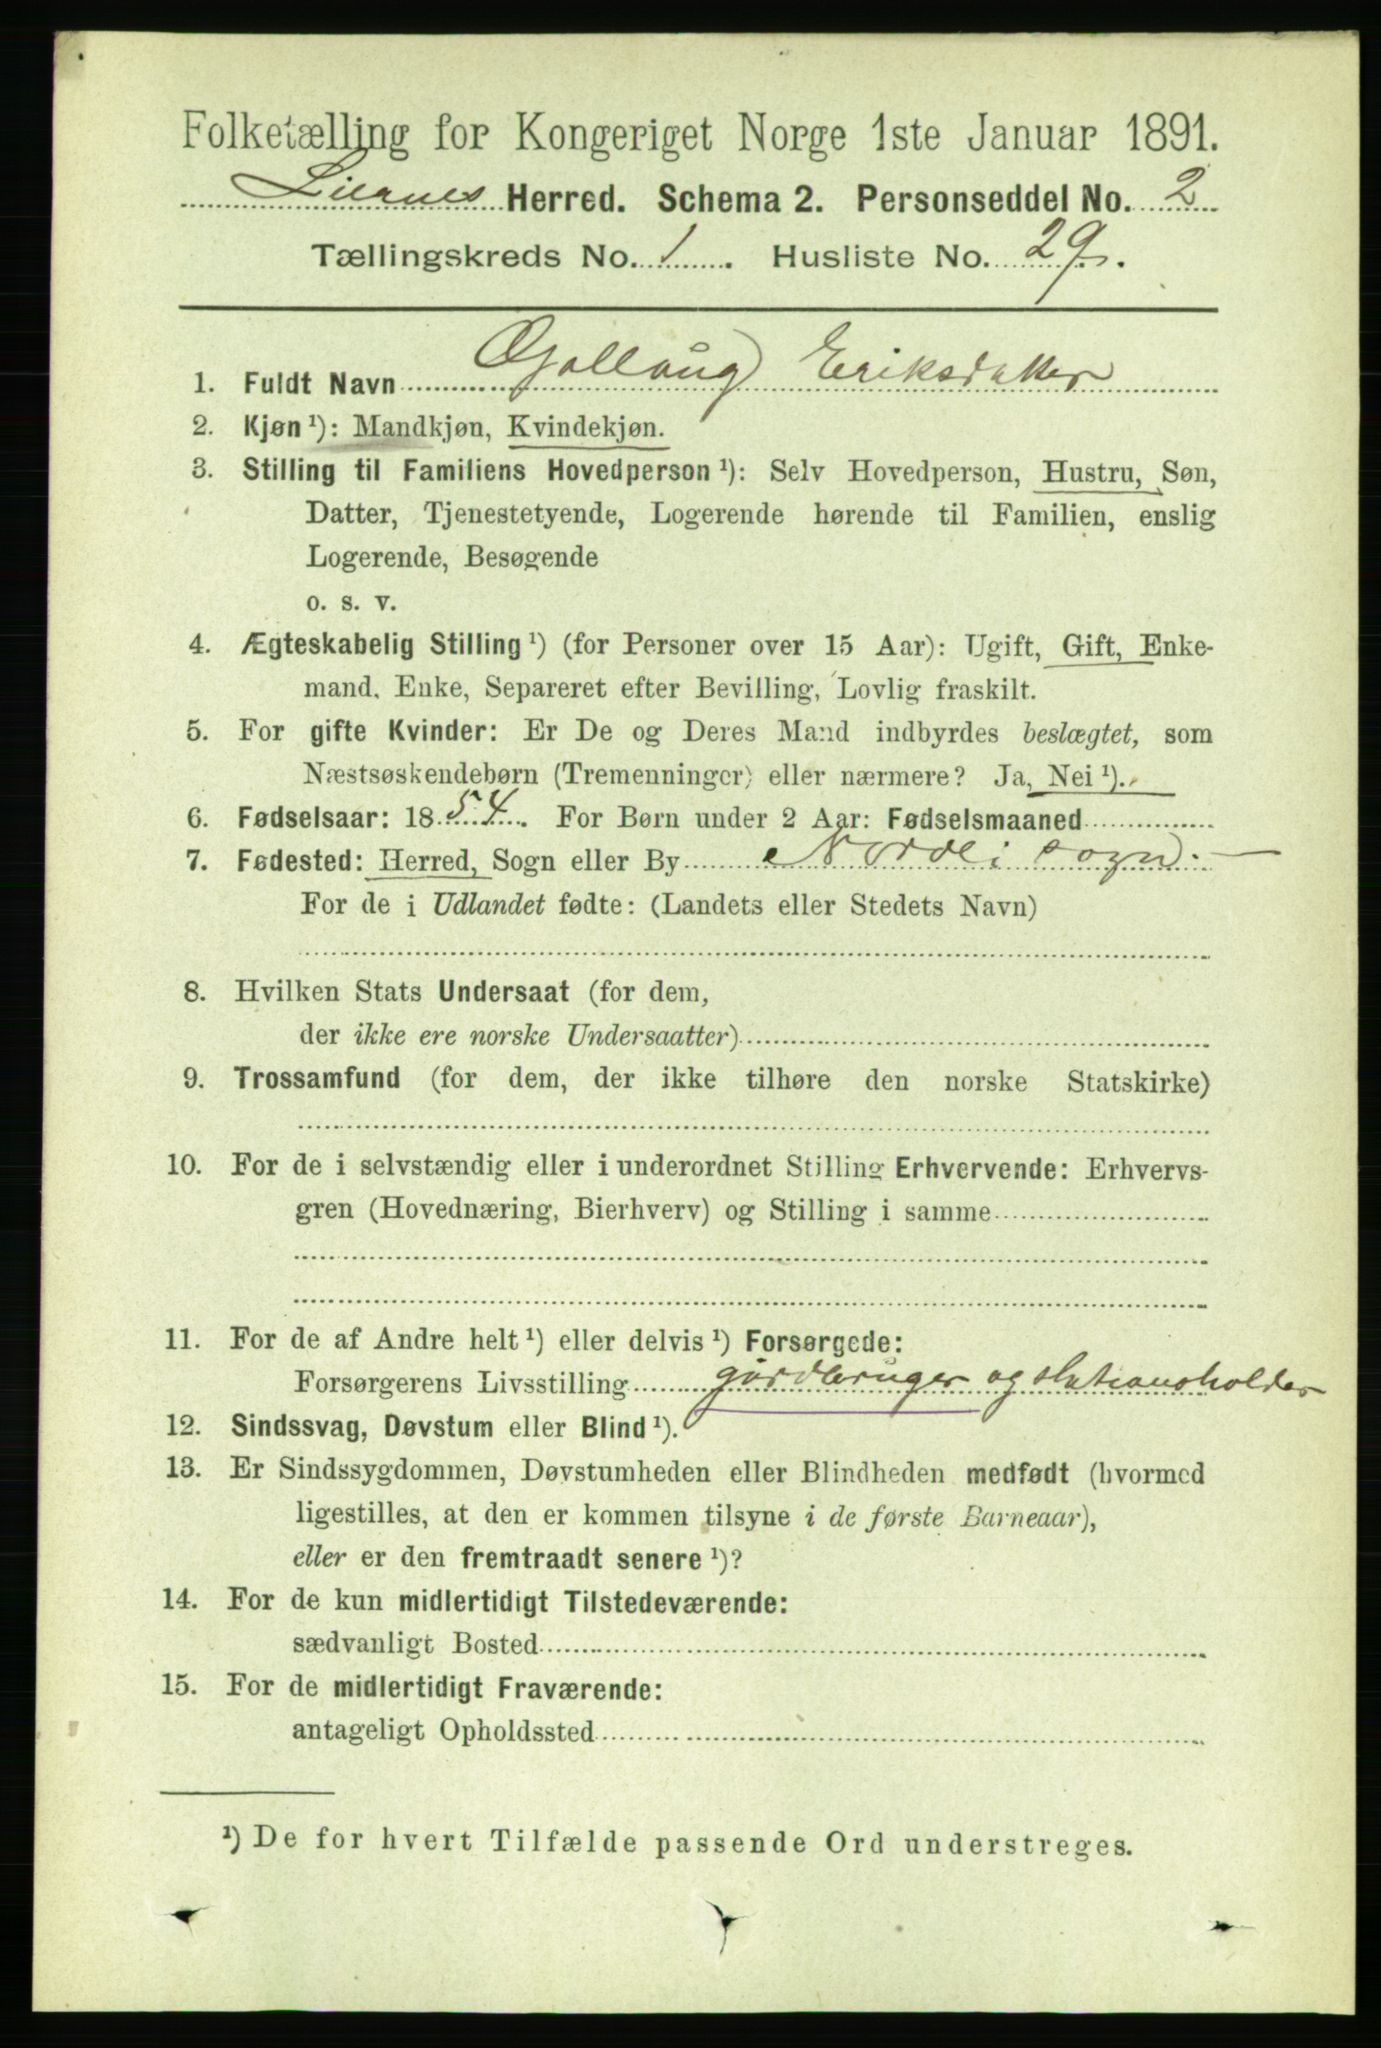 Folketælling for Kongeriget Norge 1ste Januar 1891.
Liernes Herred. Schema 2. Personseddel No. 2
Tællingskreds No. 1. Husliste No. 29.
1. Fuldt Navn Gollaug Eriksdatter
2. Kjøn ¹): Mandkjøn, Kvindekjøn.
3. Stilling til Familiens Hovedperson ¹): Selv Hovedperson, Hustru, Søn,
Datter, Tjenestetyende, Logerende hørende til Familien, enslig
Logerende, Besøgende
o. s. v.
4. Ægteskabelig Stilling ¹) (for Personer over 15 Aar): Ugift, Gift, Enke-
mand, Enke, Separeret efter Bevilling, Lovlig fraskilt.
5. For gifte Kvinder: Er De og Deres Mand indbyrdes beslægtet, som
Næstsøskendebørn (Tremenninger) eller nærmere? Ja, Nei ¹).
6. Fødselsaar: 1854. For Børn under 2 Aar: Fødselsmaaned
7. Fødested: Herred, Sogn eller By Nordli sogn.
For de i Udlandet fødte: (Landets eller Stedets Navn)
8. Hvilken Stats Undersaat (for dem,
der ikke ere norske Undersaatter)
9. Trossamfund (for dem, der ikke tilhøre den norske Statskirke)
10. For de i selvstændig eller i underordnet Stilling Erhvervende: Erhvervs-
gren (Hovednæring, Bierhverv) og Stilling i samme
11. For de af Andre helt ¹) eller delvis ¹) Forsørgede:
Forsørgerens Livsstilling gårdbruger og stationsholder
12. Sindssvag, Døvstum eller Blind ¹).
13. Er Sindssygdommen, Døvstumheden eller Blindheden medfødt (hvormed
ligestilles, at den er kommen tilsyne i de første Barneaar),
eller er den fremtraadt senere ¹)?
14. For de kun midlertidigt Tilstedeværende:
sædvanligt Bosted
15. For de midlertidigt Fraværende:
antageligt Opholdssted
¹) De for hvert Tilfælde passende Ord understreges.